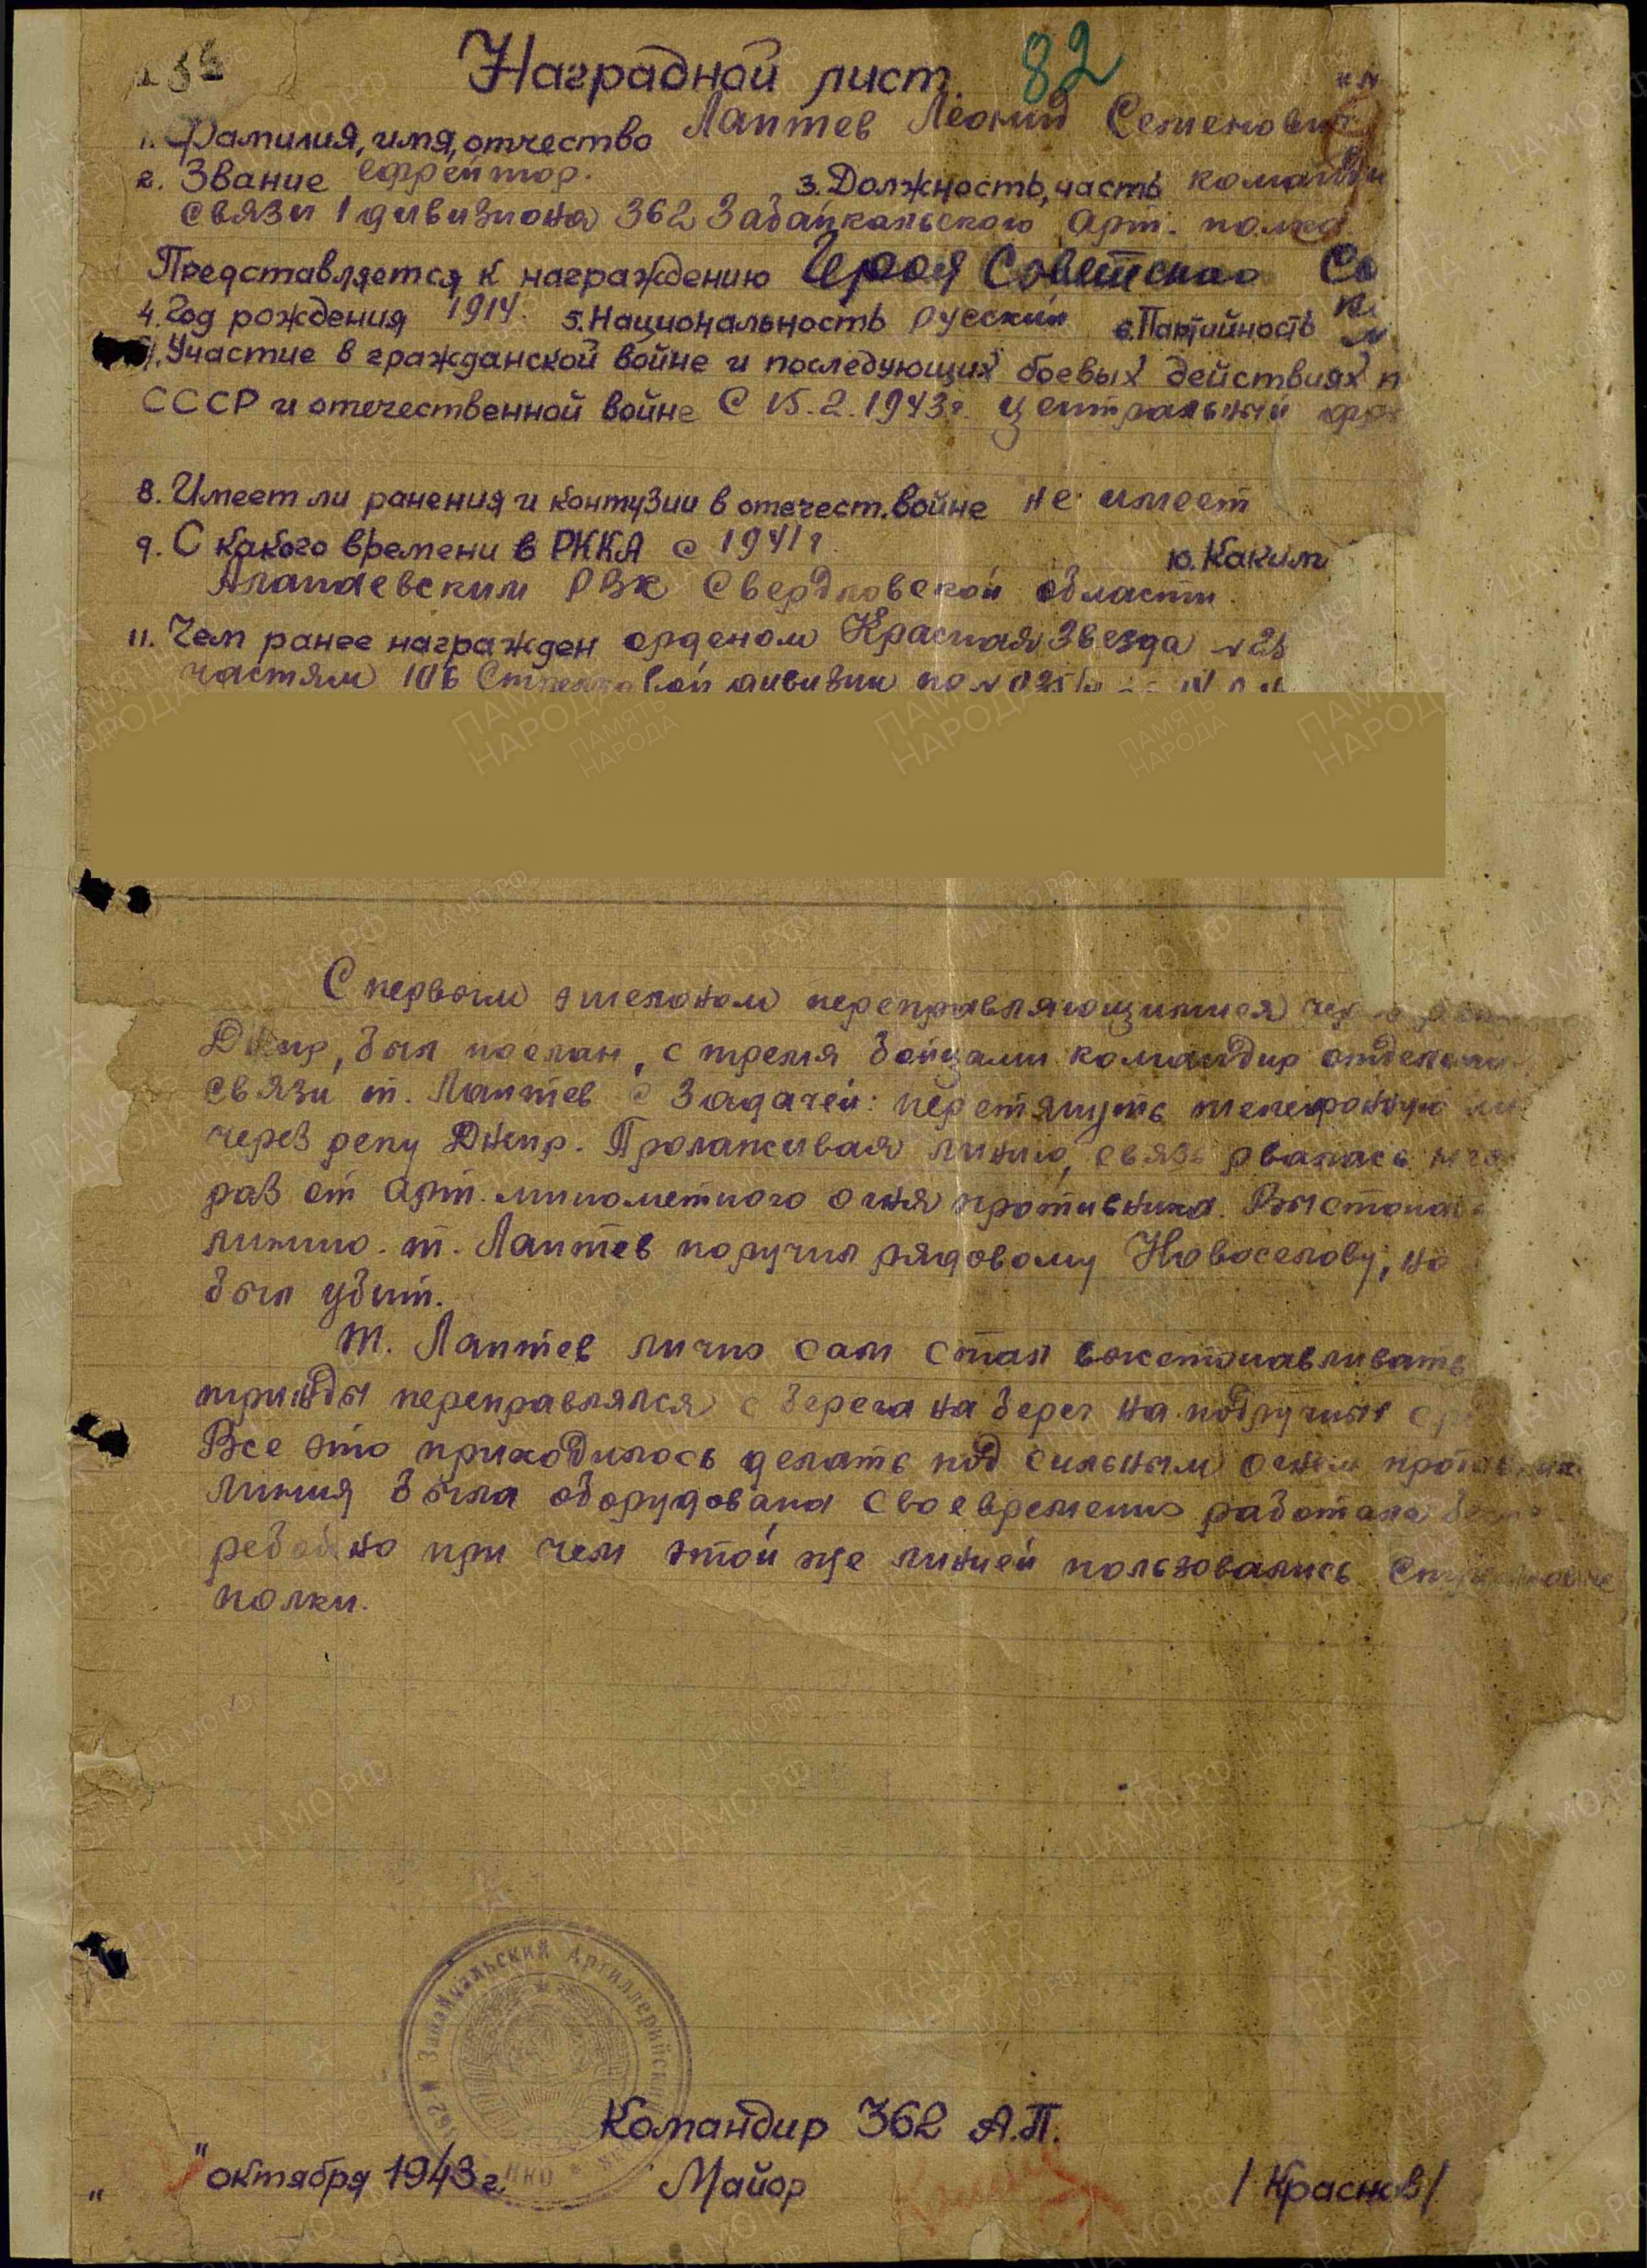 Наградной лист. 82
1. Фамилия, имя, отчество Лаптев Леонид Семенович
2. Звание ефрейтор. 3. Должность, часть команди
связи 1 дивизиона 362 Забайкальского Арт. полка
Представляется к награждению Героя Советского Со
4. Год рождения 1914. 5. Национальность русский 6. Партийность
7. Участие в гражданской войне и последующих боевых действиях п
СССР и отечественной войне С 15.2.1943г. Центральный фро
8. Имеет ли ранения и контузии в отечест. войне не имеет
9. С какого времени в РККА с 1941г. 10. Каким
Алапаевским РВК Свердловской области.
11. Чем ранее награжден орденом Красная Звезда
частям 106 Стрелковой дивизии
С первым эшелоном переправляющимися через
Днепр, был послан, с тремя бойцами командир отделени
связи т. Лаптев с задачей: перетянуть телефонную
через реку Днепр. Пролаживая линию, связь рвалась
раз от арт. минометного огня противника.
линию. т. Лаптев поручил рядовому Новоселову, но
был убит.
Т. Лаптев лично сам стал
трижды переправлялся с берега на берег на подручных
Все это приходилось делать под сильным огнем
Линия была оборудована своевременно работала
ребойно при чем этой же линией пользовались стрелковые
полки.
362 Й Забайкальский Артиллерийский
Командир 362 А.П.
" " октября 1943г. Майор /Краснов/
ПАМЯТЬ НАРОДА
ЦАМО.РФ